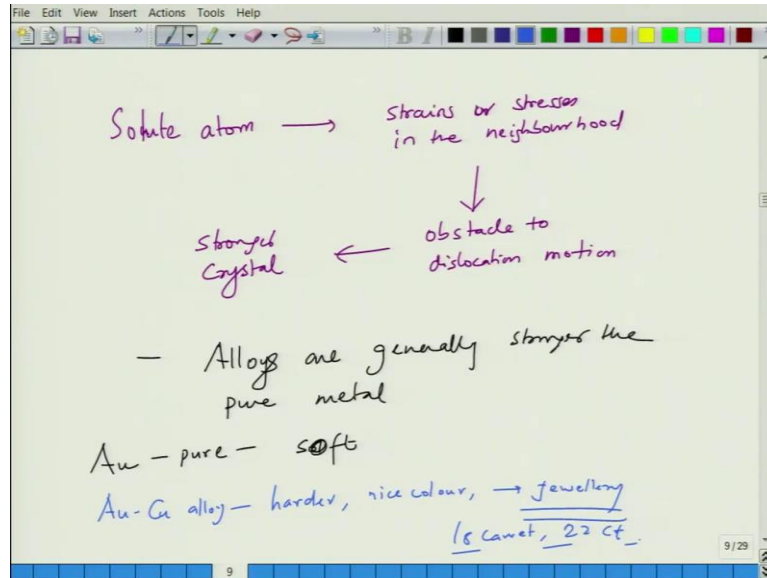 File Edit View Insert Actions Tools Help
B I
Solute atom → strains or stresses
in the neighbourhood
↓
obstacle to
dislocation motion
← stronger
crystal
— Alloys are generally stronger the
pure metal
Au - pure - soft
Au-Cu alloy - harder, nice colour, → jewellery
18 caret, 22 ct.
9/29
9